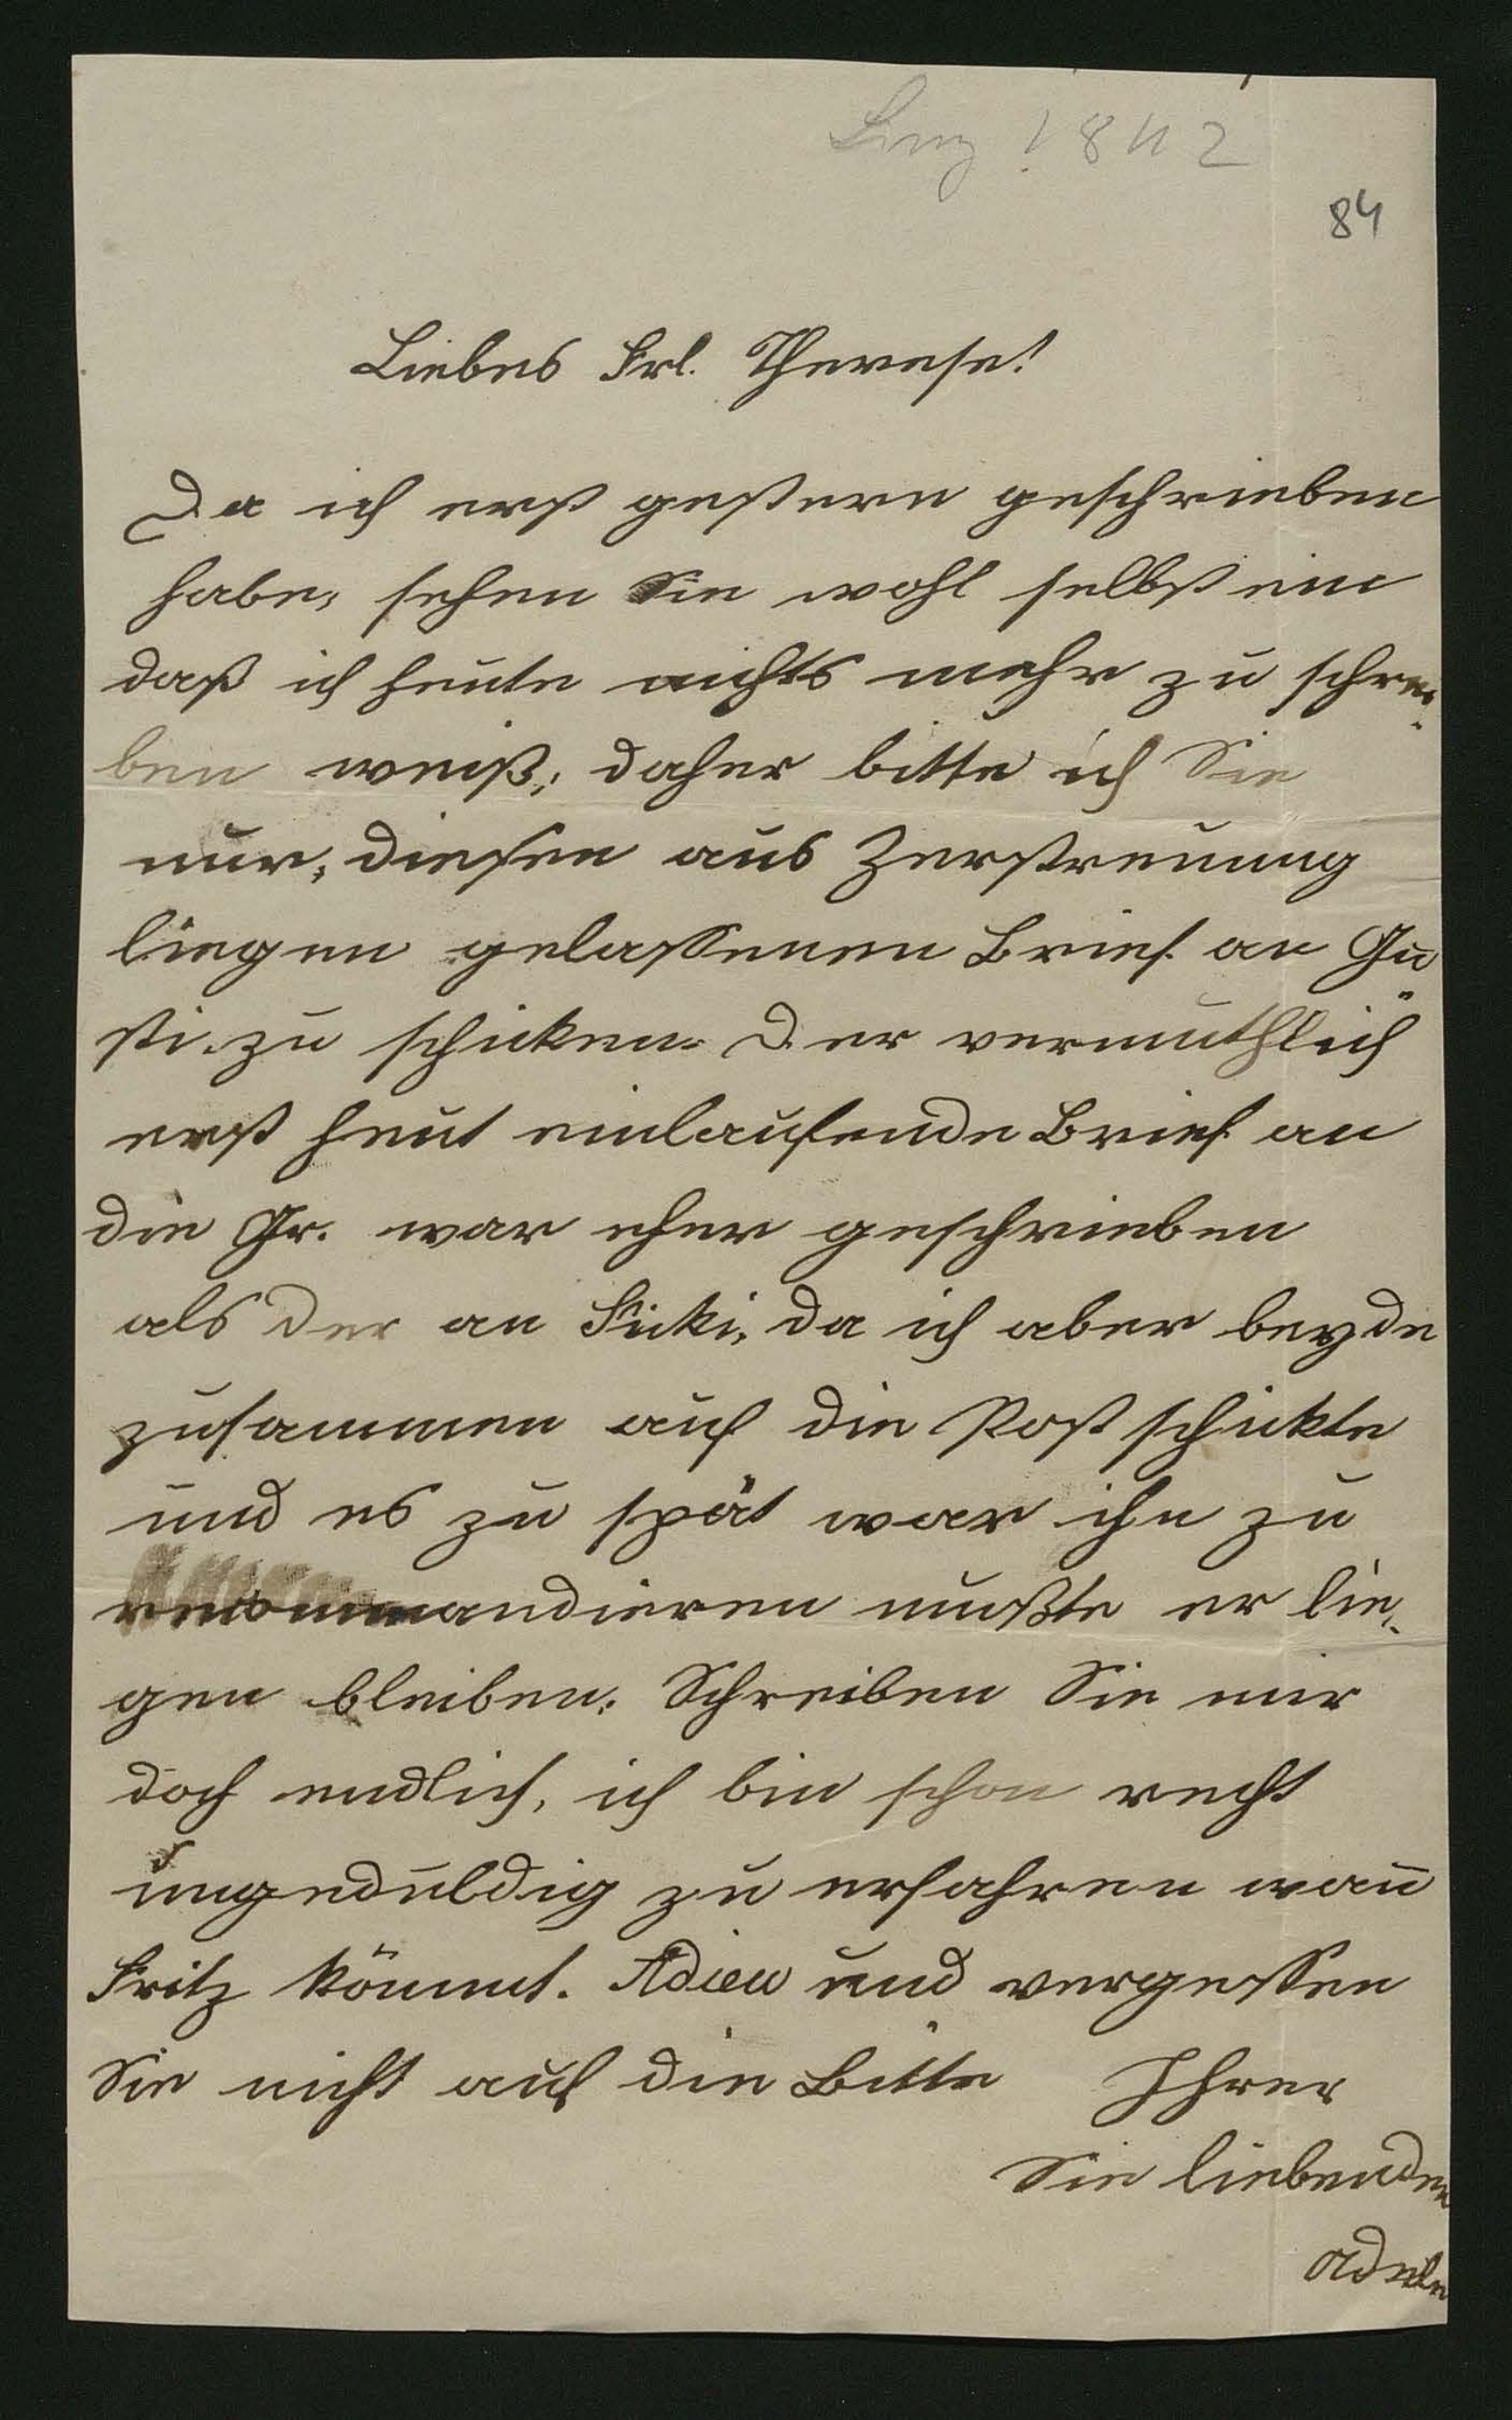 Linz 1842
84
Liebes Frl. Therese!
Da ich erst gestern geschrieben
habe, sehen Sie wohl selbst ein
daß ich heute nichts mehr zu schrei„
ben weiß, daher bitte ich Sie
nur, diesen aus Zerstreuung
liegen gelassenen Brief an Gu„
sti zu schicken. Der vermuthlich
erst heut einlaufende Brief an
die Gr. war eher geschrieben
als der an Ficki, da ich aber beyde
zusammen auf die Post schickte
und es zu spät war ihn zu
recommandieren mußte er lie„
gen bleiben. Schreiben Sie mir
doch endlich, ich bin schon recht
ungeduldig zu erfahren wan̄
Fritz kömmt. Adieu und vergessen
Sie nicht auf die Bitte Ihrer
Sie liebenden
Adele